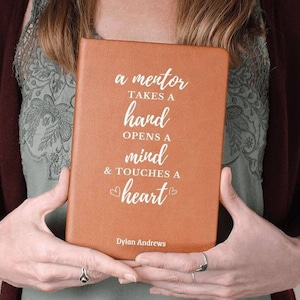 a mentor
TAKES A
hand
OPENS A
mind
& TOUCHES A
heart
Dylan Andrews